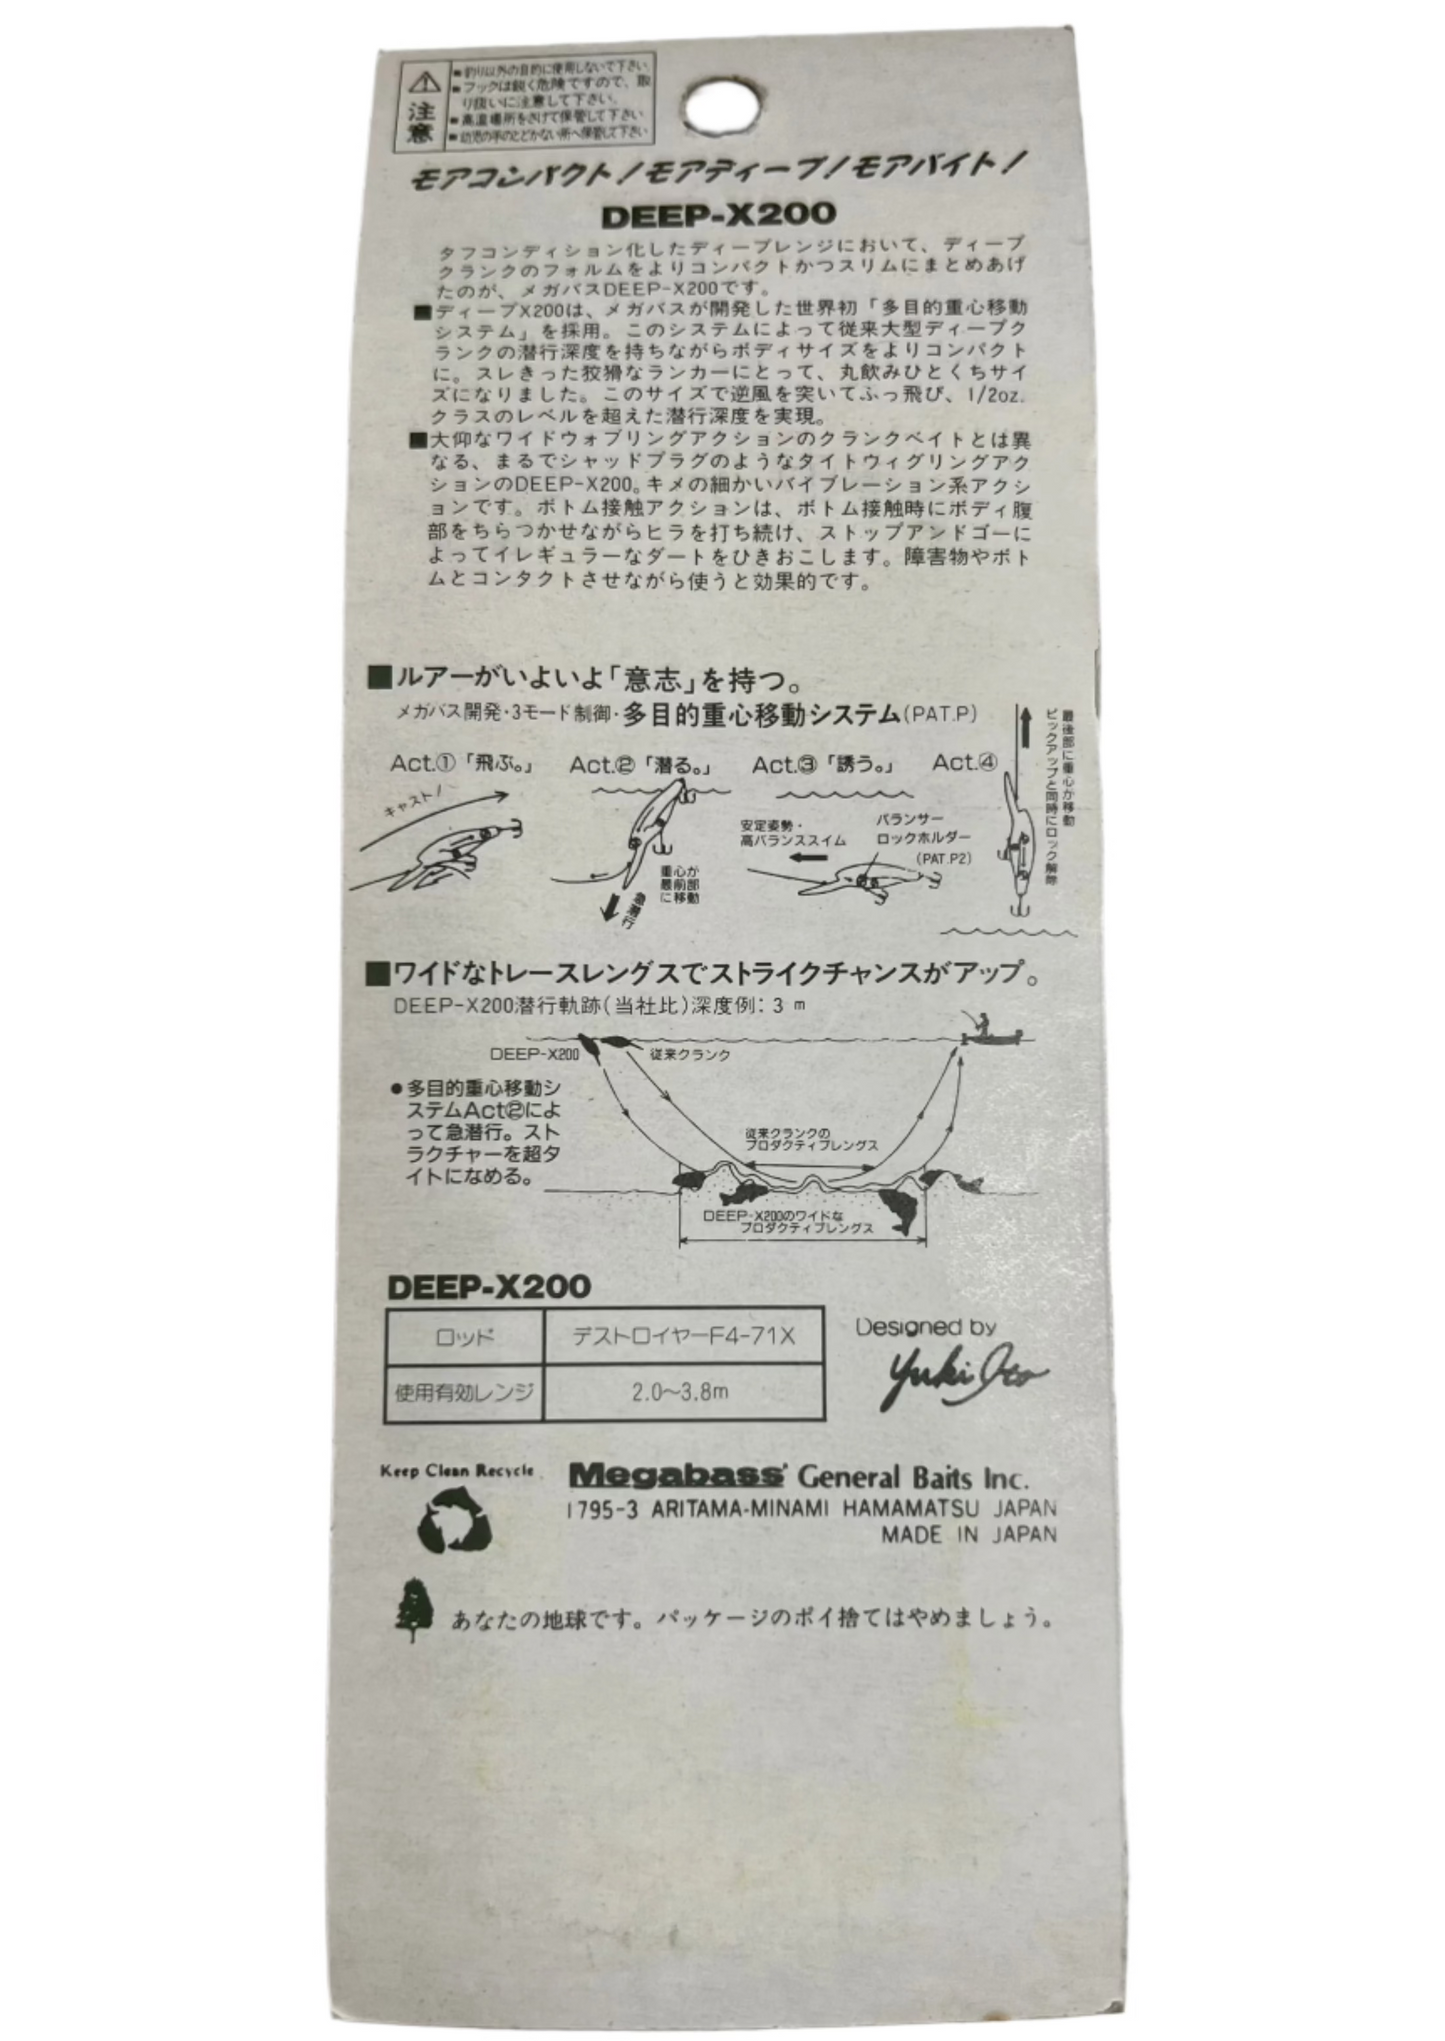 注意
■釣り以外の目的に使用しないで下さい。
■フックは鋭く危険ですので、取
り扱いに注意して下さい。
■高温場所をさけて保管して下さい
■幼児の手のとどかない所へ保管して下さい
モアコンパクト!モアディープ!モアバイト!
DEEP-X200
タフコンディション化したディープレンジにおいて、ディープ
クランクのフォルムをよりコンパクトかつスリムにまとめあげ
たのが、メガバスDEEP-X200です。
■ディープX200は、メガバスが開発した世界初「多目的重心移動
システム」を採用。このシステムによって従来大型ディープク
ランクの潜行深度を持ちながらボディサイズをよりコンパクト
に。スレきった狡猾なランカーにとって、丸飲みひとくちサイ
ズになりました。このサイズで逆風を突いてふっ飛び、1/2oz.
クラスのレベルを超えた潜行深度を実現。
■大仰なワイドウォブリングアクションのクランクベイトとは異
なる、まるでシャッドプラグのようなタイトウィグリングアク
ションのDEEP-X200。キメの細かいバイブレーション系アクシ
ョンです。ボトム接触アクションは、ボトム接触時にボディ腹
部をちらつかせながらヒラを打ち続け、ストップアンドゴーに
よってイレギュラーなダートをひきおこします。障害物やボト
ムとコンタクトさせながら使うと効果的です。
■ルアーがいよいよ「意志」を持つ。
メガバス開発・3モード制御・多目的重心移動システム(PAT.P)
Act.①「飛ぶ。」
キャスト!
Act.②「潜る。」
重心が
最前部
に移動
急潜行
Act.③「誘う。」
安定姿勢・
高バランススイム
バランサー
ロックホルダー
(PAT.P2)
Act.④
最後部に重心が移動
ピックアップと同時にロック解除
■ワイドなトレースレングスでストライクチャンスがアップ。
DEEP-X200潜行軌跡(当社比)深度例:3 m
DEEP-X200
従来クランク
●多目的重心移動シ
ステムAct②によ
って急潜行。スト
ラクチャーを超タ
イトになめる。
従来クランクの
プロダクティブレングス
DEEP-X200のワイドな
プロダクティブレングス
DEEP-X200
ロッド デストロイヤーF4-71X
使用有効レンジ 2.0〜3.8m
Designed by
Yuki Ito
Keep Clean Recycle
Megabass General Baits Inc.
1795-3 ARITAMA-MINAMI HAMAMATSU JAPAN
MADE IN JAPAN
あなたの地球です。パッケージのポイ捨てはやめましょう。